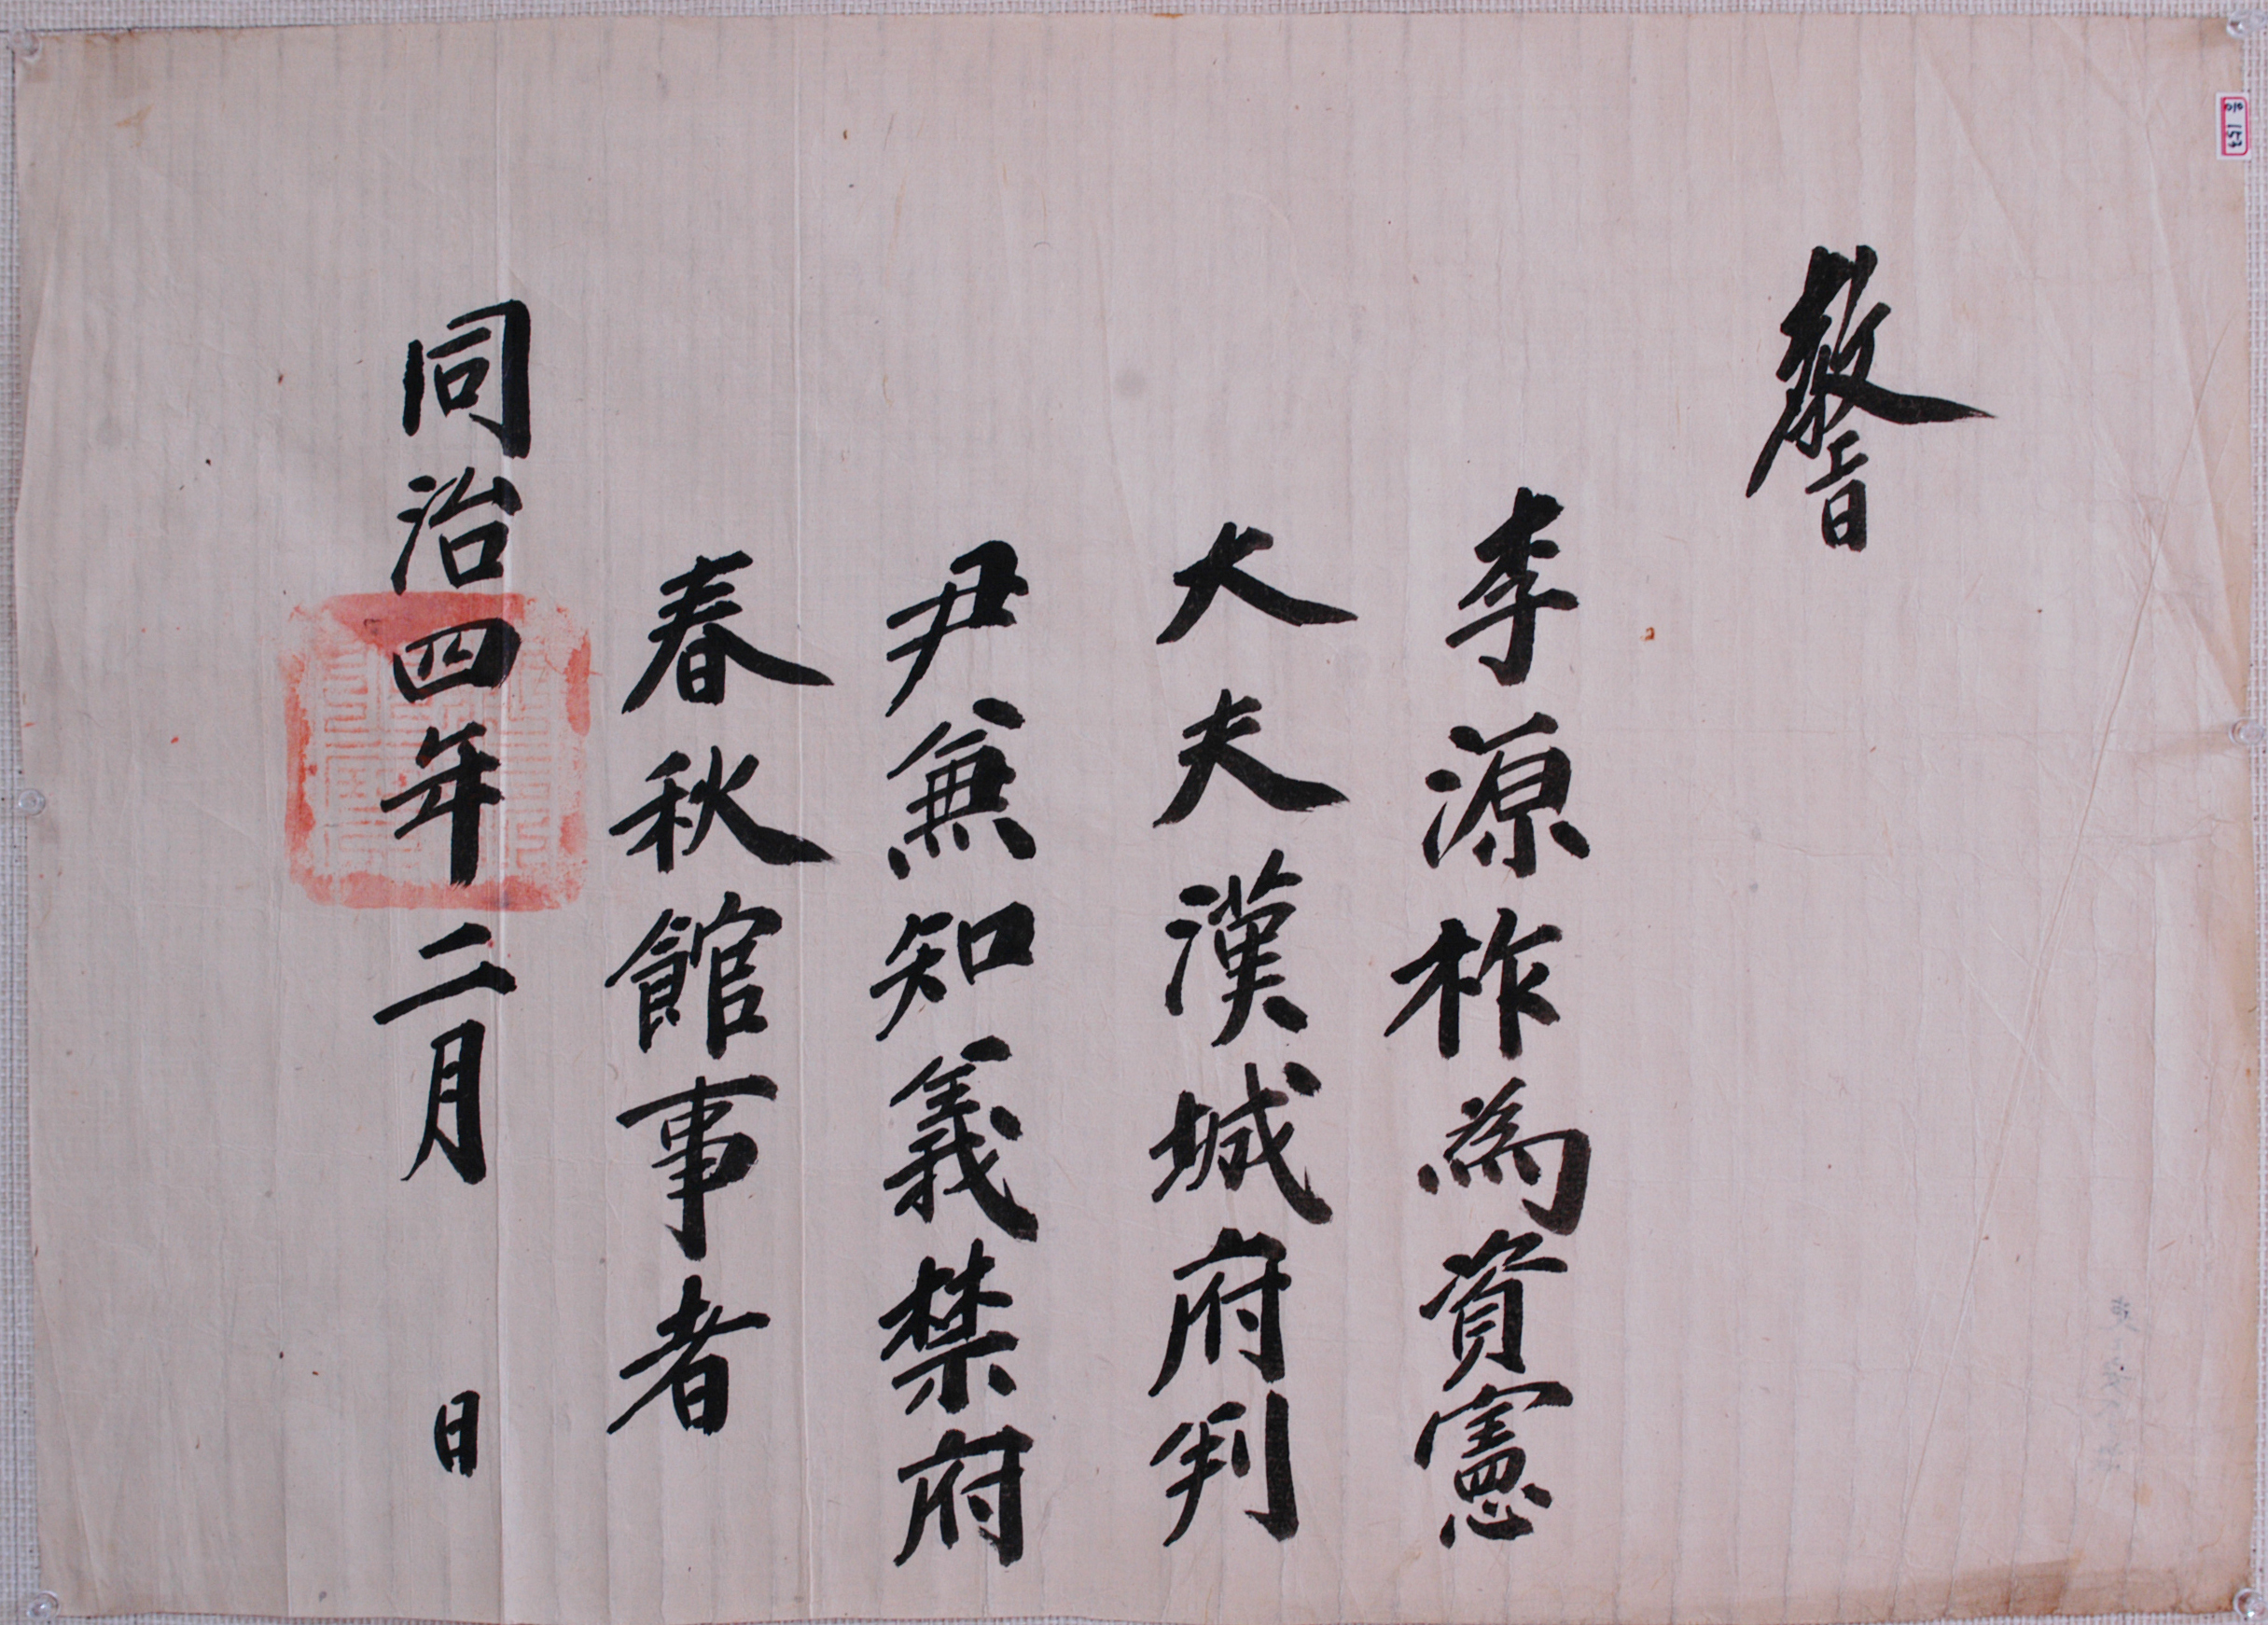 敎旨
李源祚為資憲
大夫漢城府判
尹兼知義禁府
春秋館事者
同治四年二月 日